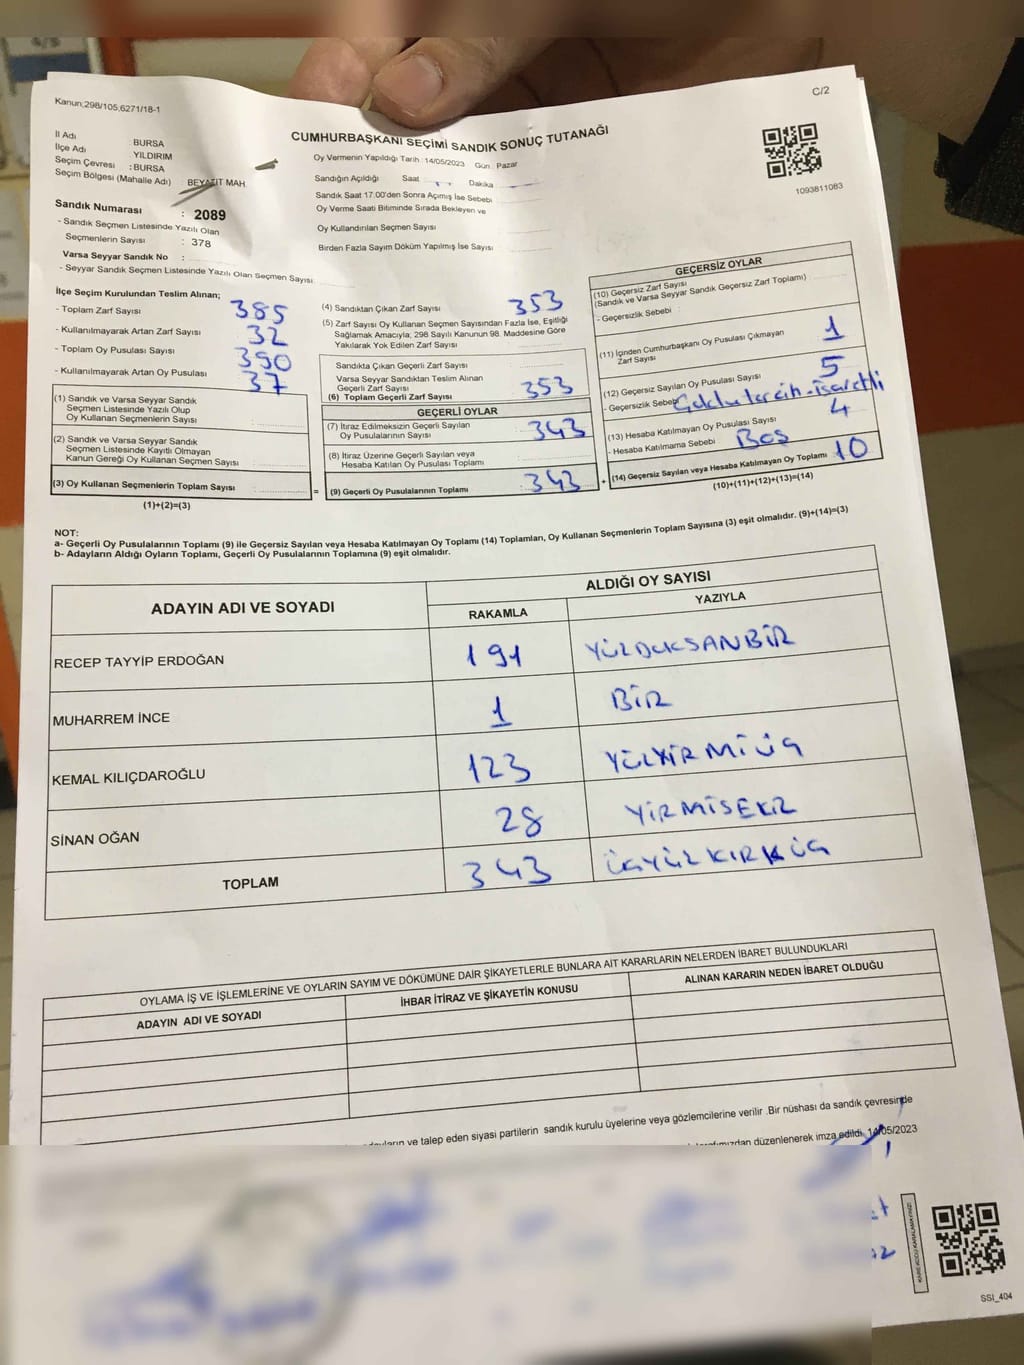 Kanun;298/105,6271/18-1
C/2
CUMHURBAŞKANI SEÇİMİ SANDIK SONUÇ TUTANAĞI
İl Adı : BURSA
İlçe Adı YILDIRIM
Seçim Çevresi : BURSA
Seçim Bölgesi (Mahalle Adı) : BEYAZIT MAH.
Sandık Numarası : 2089
- Sandık Seçmen Listesinde Yazılı Olan
Seçmenlerin Sayısı : 378
Varsa Seyyar Sandık No :
- Seyyar Sandık Seçmen Listesinde Yazılı Olan Seçmen Sayısı:
Oy Vermenin Yapıldığı Tarih : 14/05/2023 Gün : Pazar
Sandığın Açıldığı Saat Dakika
Sandık Saat 17:00'den Sonra Açımış İse Sebebi
Oy Verme Saati Bitiminde Sırada Bekleyen ve
Oy Kullandırılan Seçmen Sayısı
Birden Fazla Sayım Döküm Yapılmış İse Sayısı
1093811083
İlçe Seçim Kurulundan Teslim Alınan;
- Toplam Zarf Sayısı : 385
- Kullanılmayarak Artan Zarf Sayısı : 32
- Toplam Oy Pusulası Sayısı : 390
- Kullanılmayarak Artan Oy Pusulası : 37
(1) Sandık ve Varsa Seyyar Sandık
Seçmen Listesinde Yazılı Olup
Oy Kullanan Seçmenlerin Sayısı :
(2) Sandık ve Varsa Seyyar Sandık
Seçmen Listesinde Kayıtlı Olmayan
Kanun Gereği Oy Kullanan Seçmen Sayısı :
(3) Oy Kullanan Seçmenlerin Toplam Sayısı :
(1)+(2)=(3)
(4) Sandıktan Çıkan Zarf Sayısı : 353
(5) Zarf Sayısı Oy Kullanan Seçmen Sayısından Fazla İse, Eşitliği
Sağlamak Amacıyla; 298 Sayılı Kanunun 98. Maddesine Göre
Yakılarak Yok Edilen Zarf Sayısı :
Sandıkta Çıkan Geçerli Zarf Sayısı
Varsa Seyyar Sandıktan Teslim Alınan
Geçerli Zarf Sayısı :
(6) Toplam Geçerli Zarf Sayısı : 353
GEÇERLİ OYLAR
(7) İtiraz Edilmeksizin Geçerli Sayılan
Oy Pusulalarının Sayısı : 343
(8) İtiraz Üzerine Geçerli Sayılan veya
Hesaba Katılan Oy Pusulası Toplamı :
= (9) Geçerli Oy Pusulalarının Toplamı : 343
GEÇERSİZ OYLAR
(10) Geçersiz Zarf Sayısı
(Sandık ve Varsa Seyyar Sandık Geçersiz Zarf Toplamı)
- Geçersizlik Sebebi :
(11) İçinden Cumhurbaşkanı Oy Pusulası Çıkmayan
Zarf Sayısı : 1
(12) Geçersiz Sayılan Oy Pusulası Sayısı : 5
- Geçersizlik Sebebi
(13) Hesaba Katılmayan Oy Pusulası Sayısı : 4
- Hesaba Katılmama Sebebi : Boş
+ (14) Geçersiz Sayılan veya Hesaba Katılmayan Oy Toplamı : 10
(10)+(11)+(12)+(13)=(14)
NOT:
a- Geçerli Oy Pusulalarının Toplamı (9) ile Geçersiz Sayılan veya Hesaba Katılmayan Oy Toplamı (14) Toplamları, Oy Kullanan Seçmenlerin Toplam Sayısına (3) eşit olmalıdır. (9)+(14)=(3)
b- Adayların Aldığı Oyların Toplamı, Geçerli Oy Pusulalarının Toplamına (9) eşit olmalıdır.
ADAYIN ADI VE SOYADI ALDIĞI OY SAYISI
RAKAMLA YAZIYLA
RECEP TAYYİP ERDOĞAN 191 YÜZDOKSANBİR
MUHARREM İNCE 1 BİR
KEMAL KILIÇDAROĞLU 123 YÜZYİRMİÜÇ
SİNAN OĞAN 28 YİRMİSEKİZ
TOPLAM 343 ÜÇYÜZKIRKÜÇ
OYLAMA İŞ VE İŞLEMLERİNE VE OYLARIN SAYIM VE DÖKÜMÜNE DAİR ŞİKAYETLERLE BUNLARA AİT KARARLARIN NELERDEN İBARET BULUNDUKLARI
ADAYIN ADI VE SOYADI İHBAR İTİRAZ VE ŞİKAYETİN KONUSU ALINAN KARARIN NEDEN İBARET OLDUĞU
ve talep eden siyasi partilerin sandık kurulu üyelerine veya gözlemcilerine verilir .Bir nüshası da sandık çevresinde
düzenlenerek imza edildi. 14/05/2023
SSI_404